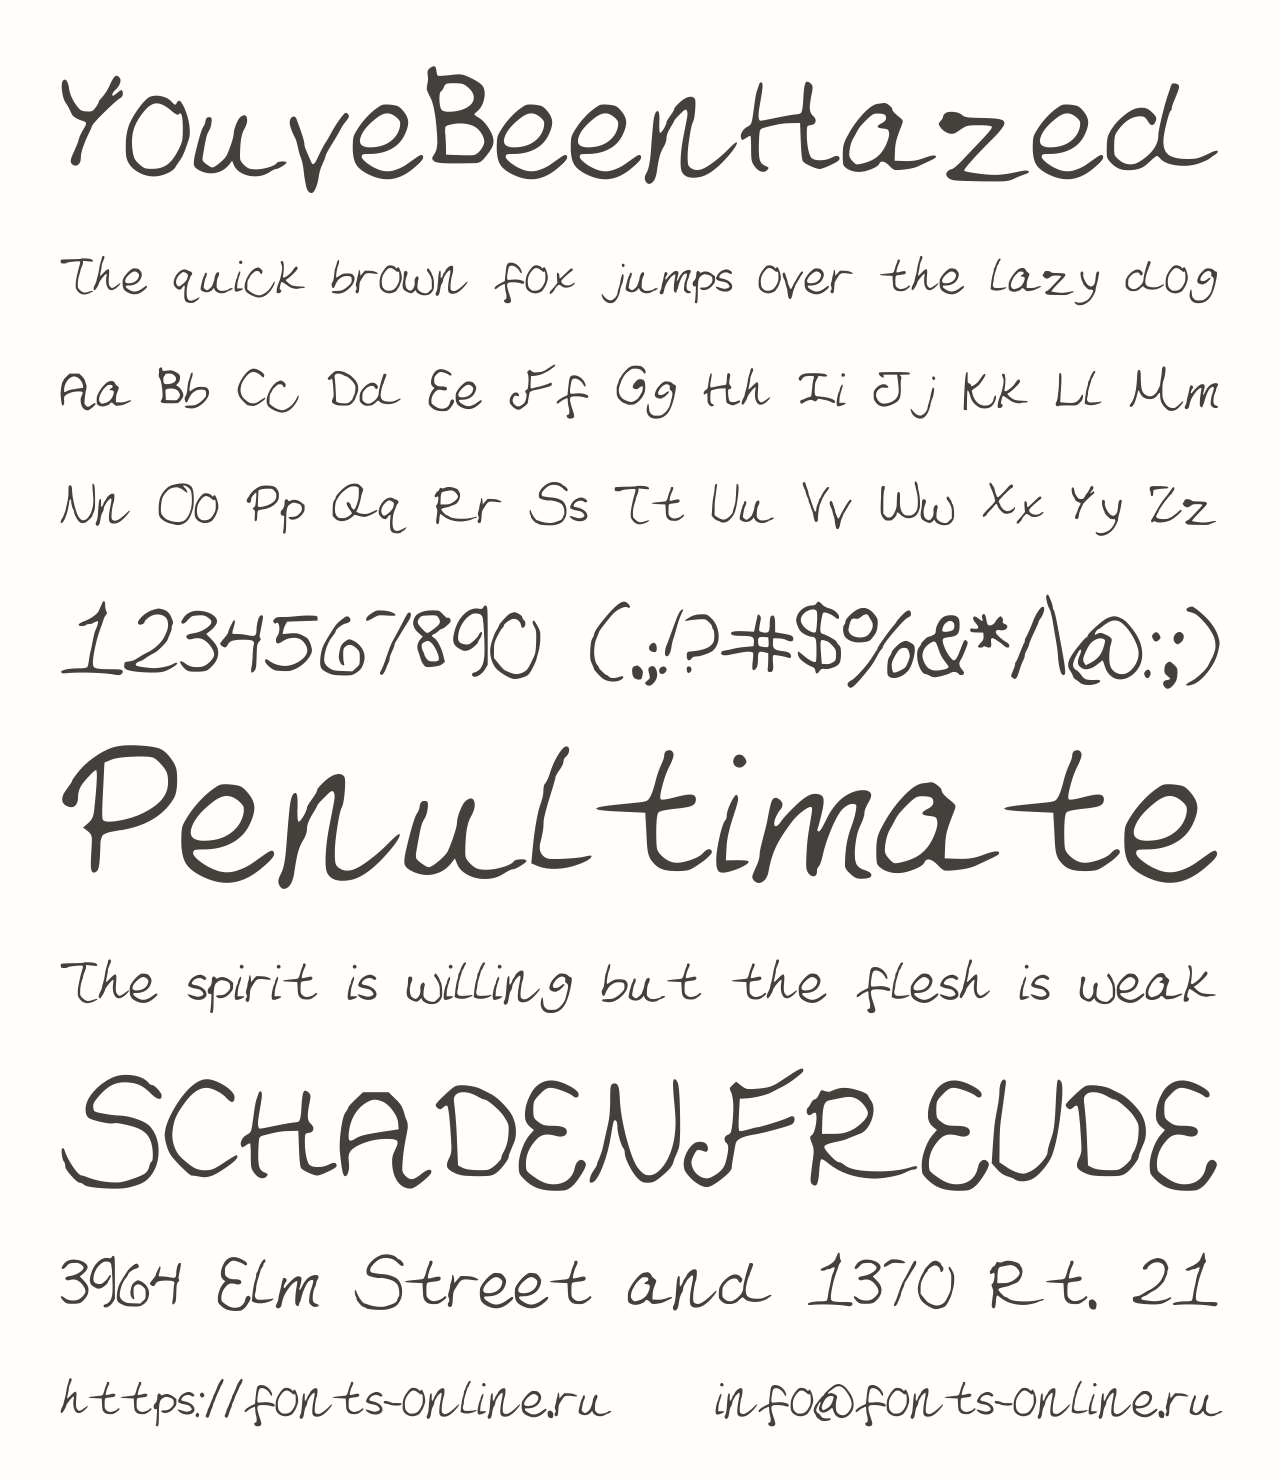 YouveBeenHazed
The quick brown fox jumps over the lazy dog
Aa Bb Cc Dd Ee Ff Gg Hh Ii Jj Kk Ll Mm
Nn Oo Pp Qq Rr Ss Tt Uu Vv Ww Xx Yy Zz
1234567890 (.,;!?#$%&*/\@:;)
Penultimate
The spirit is willing but the flesh is weak
SCHADENFREUDE
3964 Elm Street and 1370 Rt. 21
https://fonts-online.ru info@fonts-online.ru